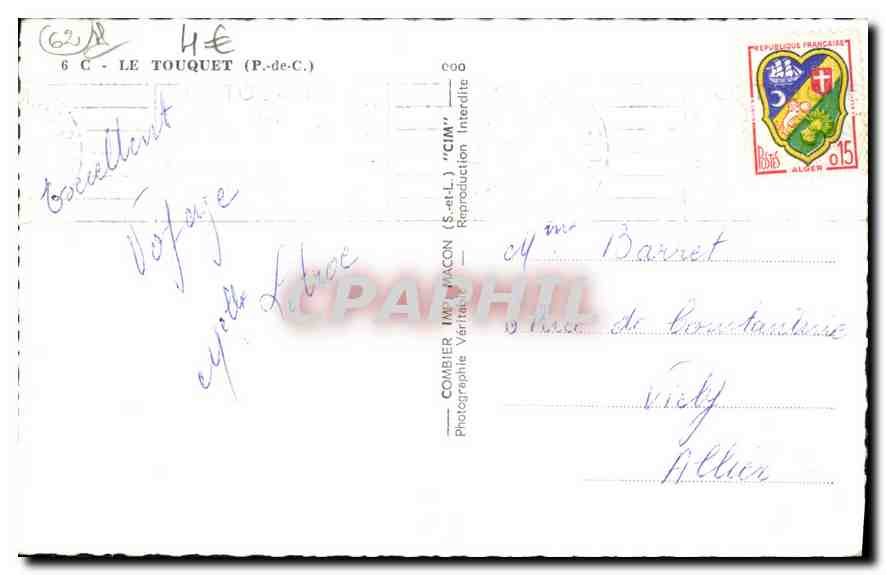 62
4€
6 C - LE TOUQUET (P.-de-C.)
Excellent
Voyage
Melle
Mme Barret
rue de Constantine
Vichy
Allier
COMBIER IMP. MACON (S.-et-L.) "CIM"
Photographie Véritable - Reproduction Interdite
REPUBLIQUE FRANÇAISE
POSTES
0,15
ALGER
CPARPHIL